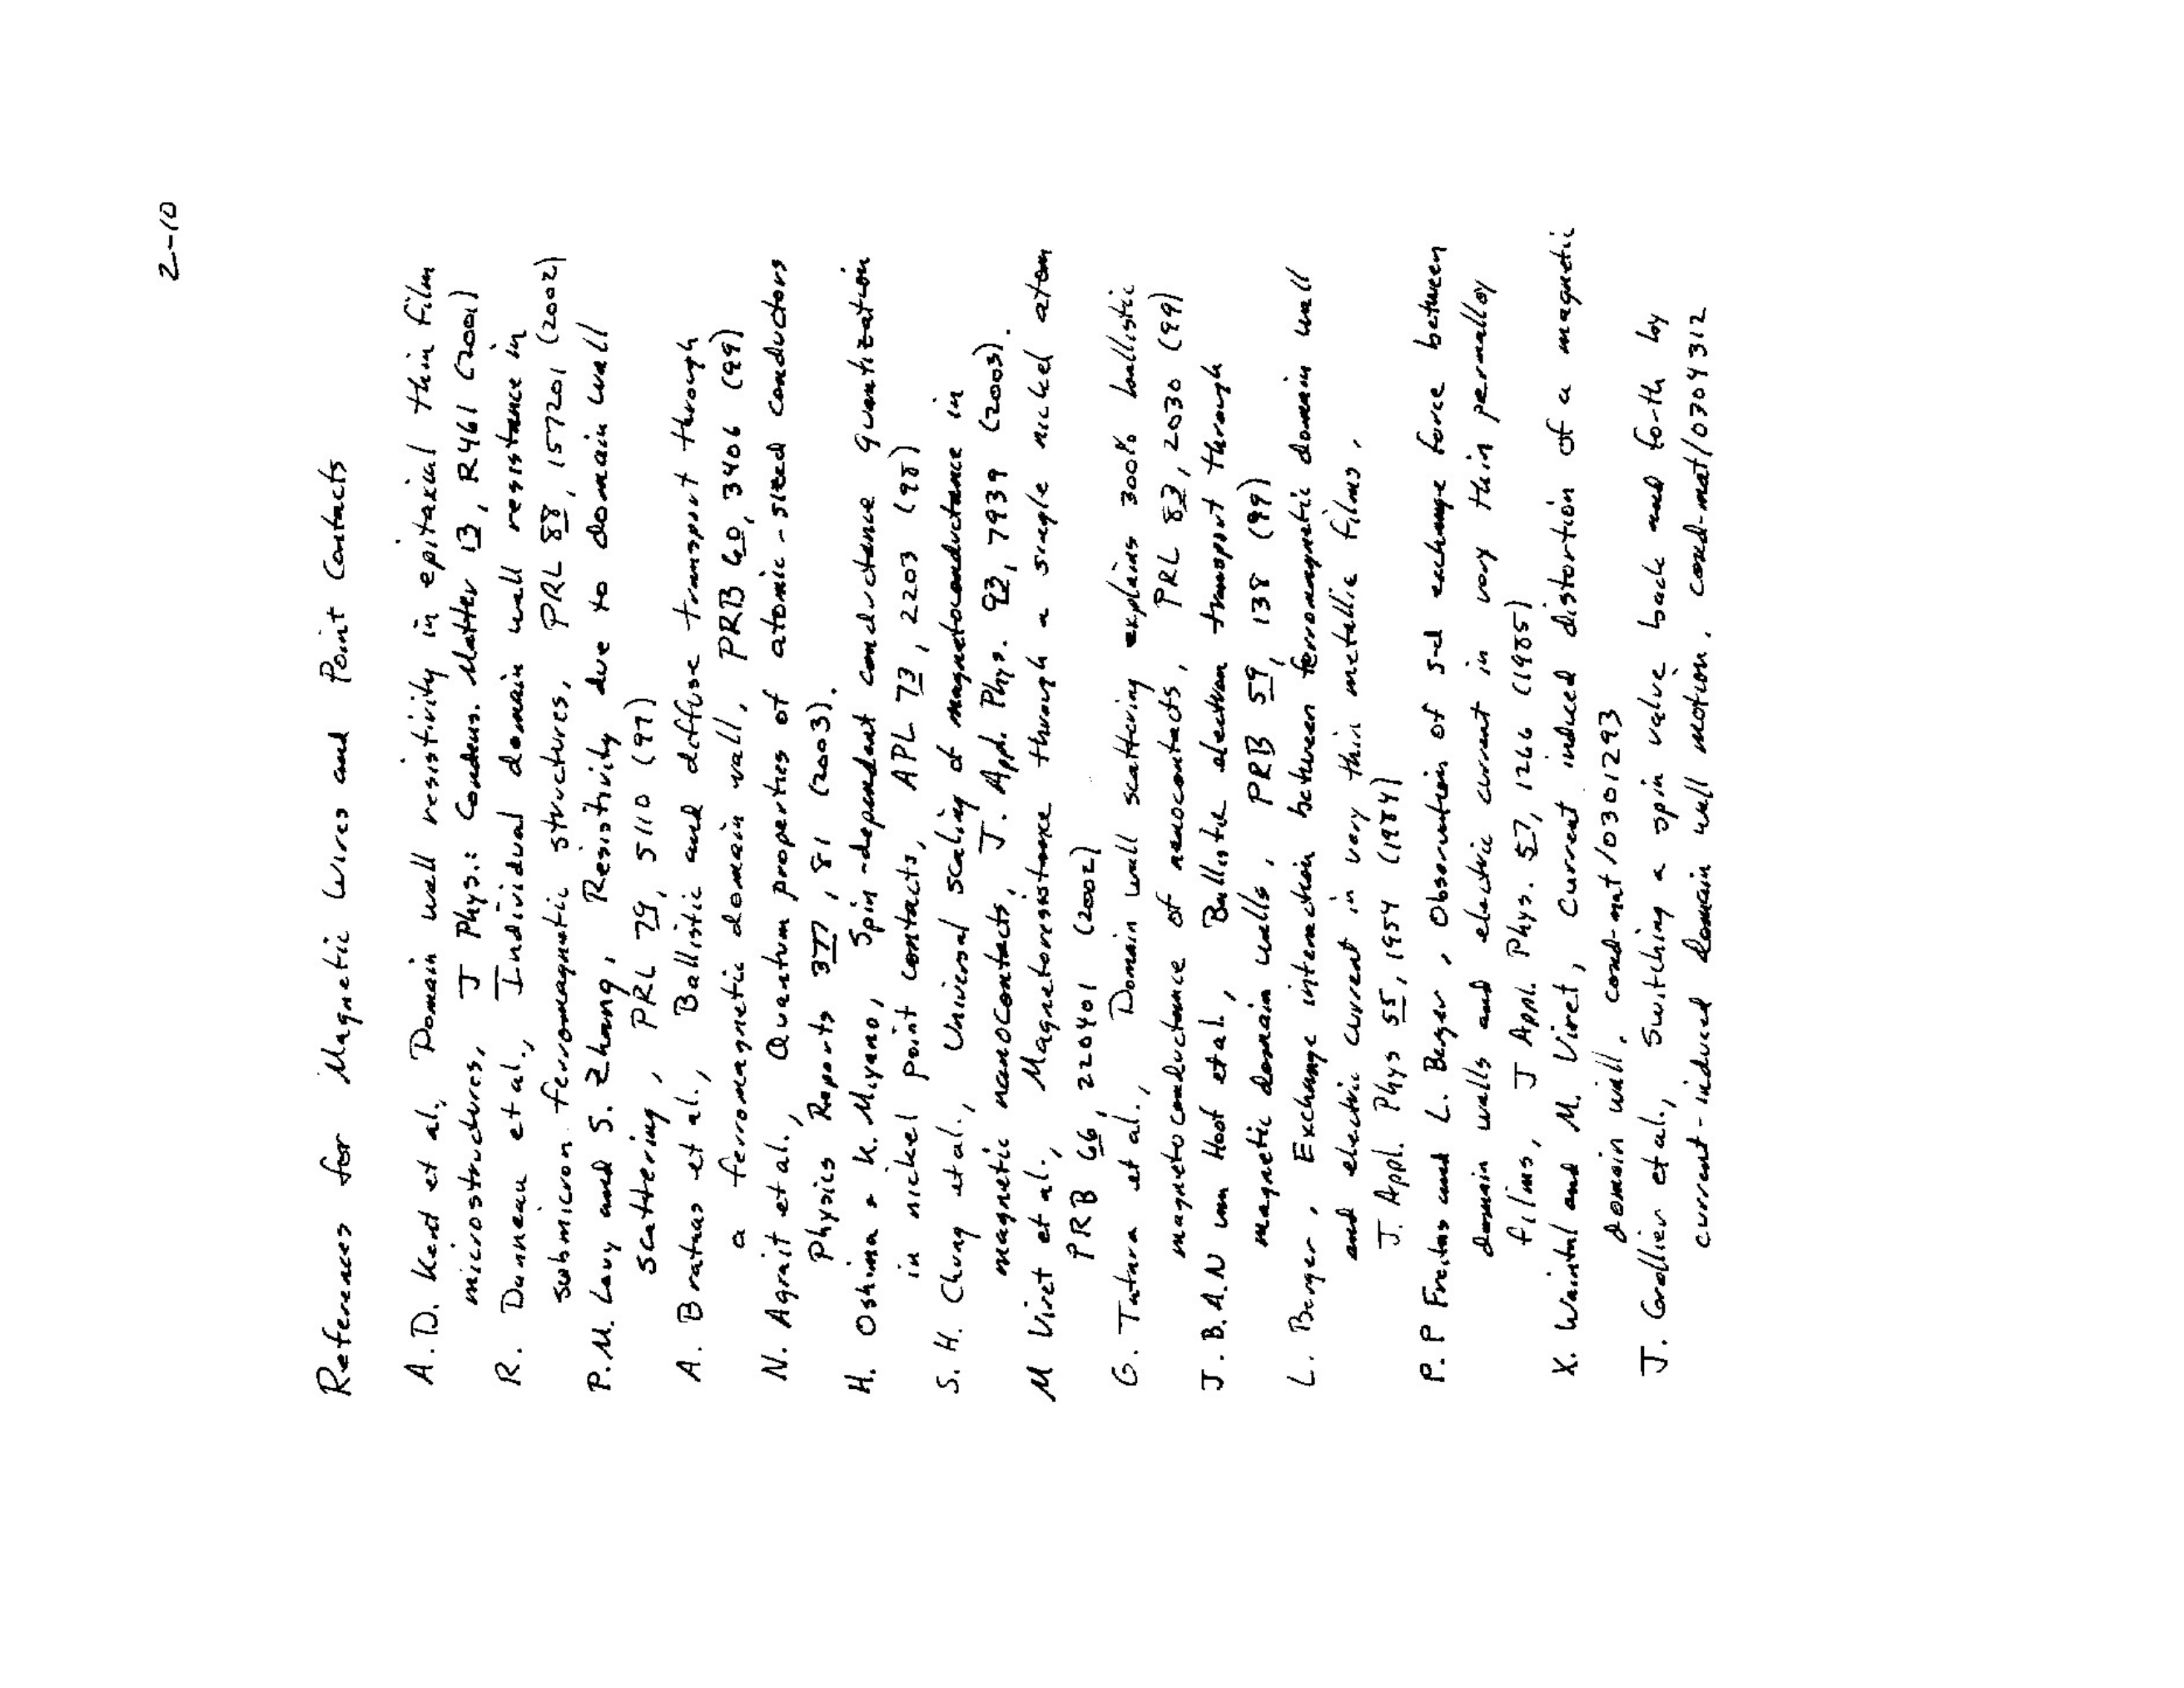 2-10
References for Magnetic Wires and Point Contacts
A. D. Kent et al., Domain wall resistivity in epitaxial thin film
microstructures, J Phys.: Condens. Matter 13, R461 (2001)
R. Danneau et al., Individual domain wall resistance in
submicron ferromagnetic structures, PRL 88, 157201 (2002)
P. M. Levy and S. Zhang, Resistivity due to domain wall
scattering, PRL 79, 5110 (97)
A. Brataas et al., Ballistic and diffuse transport through
a ferromagnetic domain wall, PRB 60, 3406 (99)
N. Agrait et al., Quantum properties of atomic-sized conductors
Physics Reports 377, 81 (2003).
H. Oshima & K. Miyano, Spin-dependent conductance quantization
in nickel point contacts, APL 73, 2203 (98)
S. H. Chung et al., Universal scaling of magnetoconductance in
magnetic nanocontacts, J. Appl. Phys. 93, 7939 (2003).
M Viret et al., Magnetoresistance through a single nickel atom
PRB 66, 220401 (2002)
G. Tatara et al., Domain wall scattering explains 300% ballistic
magnetoconductance of nanocontacts, PRL 83, 2030 (99)
J. B. A. N van Hoof et al., Ballistic electron transport through
magnetic domain walls, PRB 59, 138 (99)
L. Berger, Exchange interaction between ferromagnetic domain wall
and electric current in very thin metallic films,
J. Appl. Phys 55, 1954 (1984)
P. P Freitas and L. Berger, Observation of s-d exchange force between
domain walls and electric current in very thin permalloy
films, J Appl. Phys. 57, 1266 (1985)
X. Waintal and M. Viret, Current induced distortion of a magnetic
domain wall, cond-mat/0301293
J. Grollier et al., Switching a spin valve back and forth by
current-induced domain wall motion, cond-mat/0304312